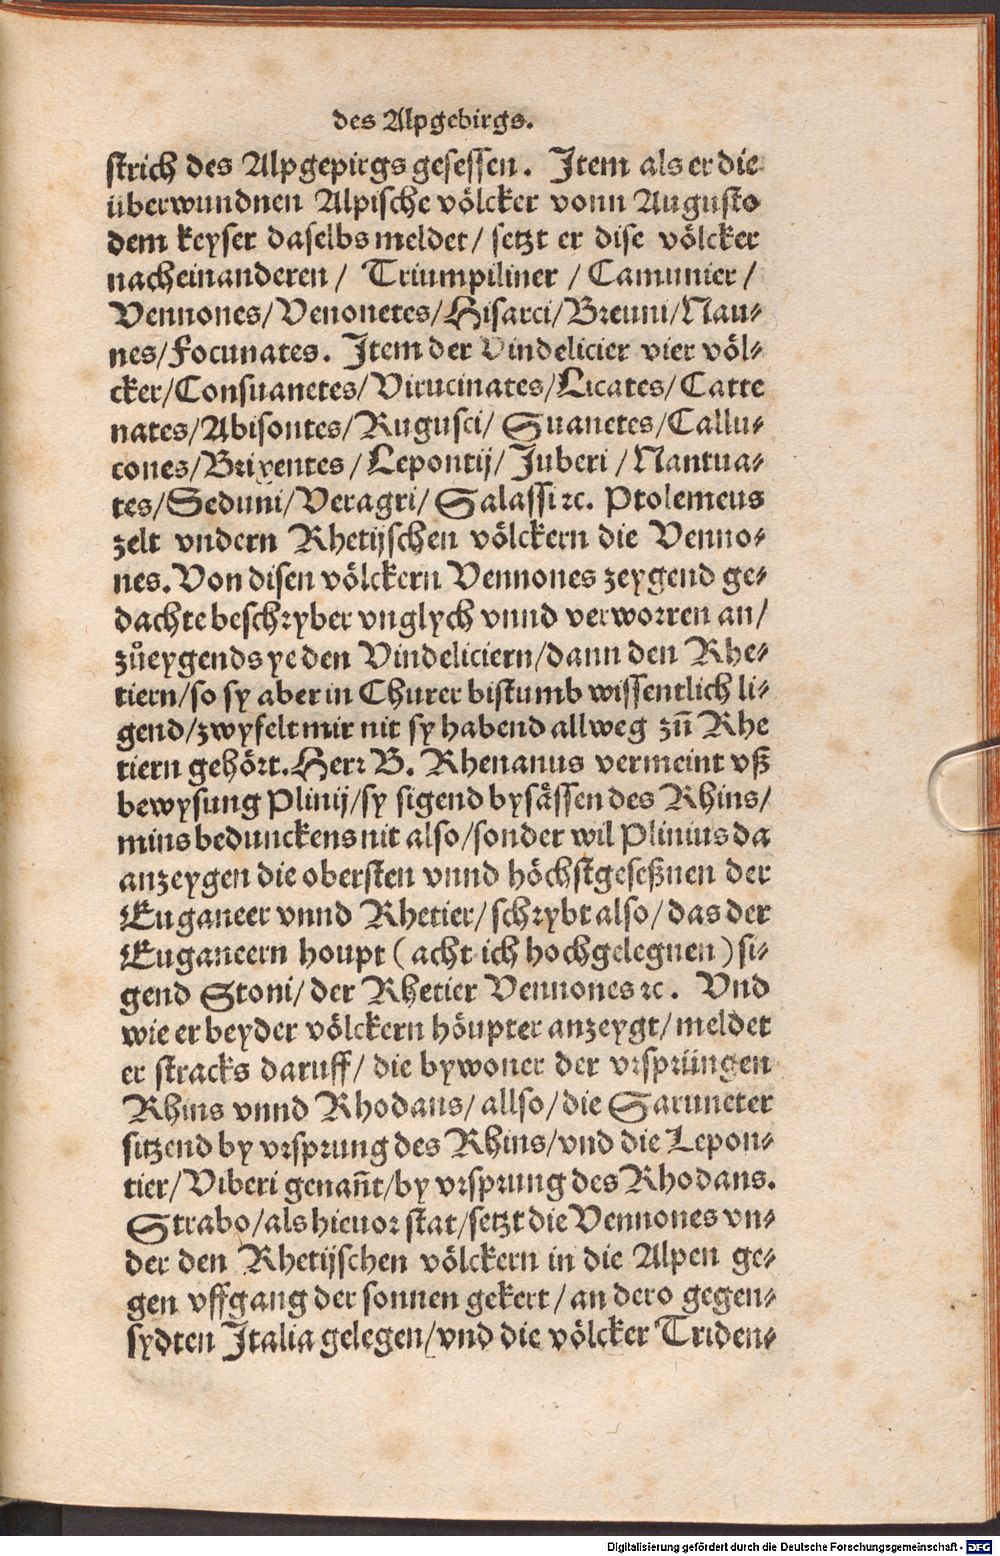 des Alpgebirgs.
strich des Alpgepirgs gesessen. Item als er die
überwundnen Alpische völcker vonn Augusto
dem keyser daselbs meldet/ setzt er dise völcker
nacheinanderen/ Triumpiliner/ Camunier/
Vennones/Venonetes/Hisarci/Breuni/Nau-
nes/Focunates. Item der Vindelicier vier völ-
cker/Consuanetes/Virucinates/Licates/Catte
nates/Abisontes/Rugusci/ Suanetes/Callu-
cones/Brixentes/Lepontij/Juberi/Nantua-
tes/Seduni/Veragri/ Salassi ⁊c. Ptolemeus
zelt vndern Rhetijschen völckern die Venno-
nes. Von disen völckern Vennones zeygend ge-
dachte beschryber vnglych vnnd verworren an/
zůeygends ye den Vindeliciern/dann den Rhe-
tiern/so sy aber in Churer bistumb wissentlich li-
gend/zwyfelt mir nit sy habend allweg zuͦ Rhe
tiern gehört. Herr B. Rhenanus vermeint vß
bewysung Plinij/sy sigend bysässen des Rhins/
mins bedunckens nit also/sonder wil Plinius da
anzeygen die obersten vnnd höchstgeseßnen der
Euganeer vnnd Rhetier/ schrybt also/das der
Euganeern houpt (acht ich hochgelegnen) si-
gend Stoni/ der Rhetier Vennones ⁊c. Vnd
wie er beyder völckern höupter anzeygt/meldet
er stracks daruff/ die bywoner der vrsprüngen
Rhins vnnd Rhodans/ allso/die Saruneter
sitzend by vrsprung des Rhins/vnd die Lepon-
tier/Viberi genañt/by vrsprung des Rhodans.
Strabo/als hieuor stat/setzt die Vennones vn-
der den Rhetijschen völckern in die Alpen ge-
gen vffgang der sonnen gekert/an dero gegen-
sydten Italia gelegen/vnd die völcker Triden-
Digitalisierung gefördert durch die Deutsche Forschungsgemeinschaft - DFG